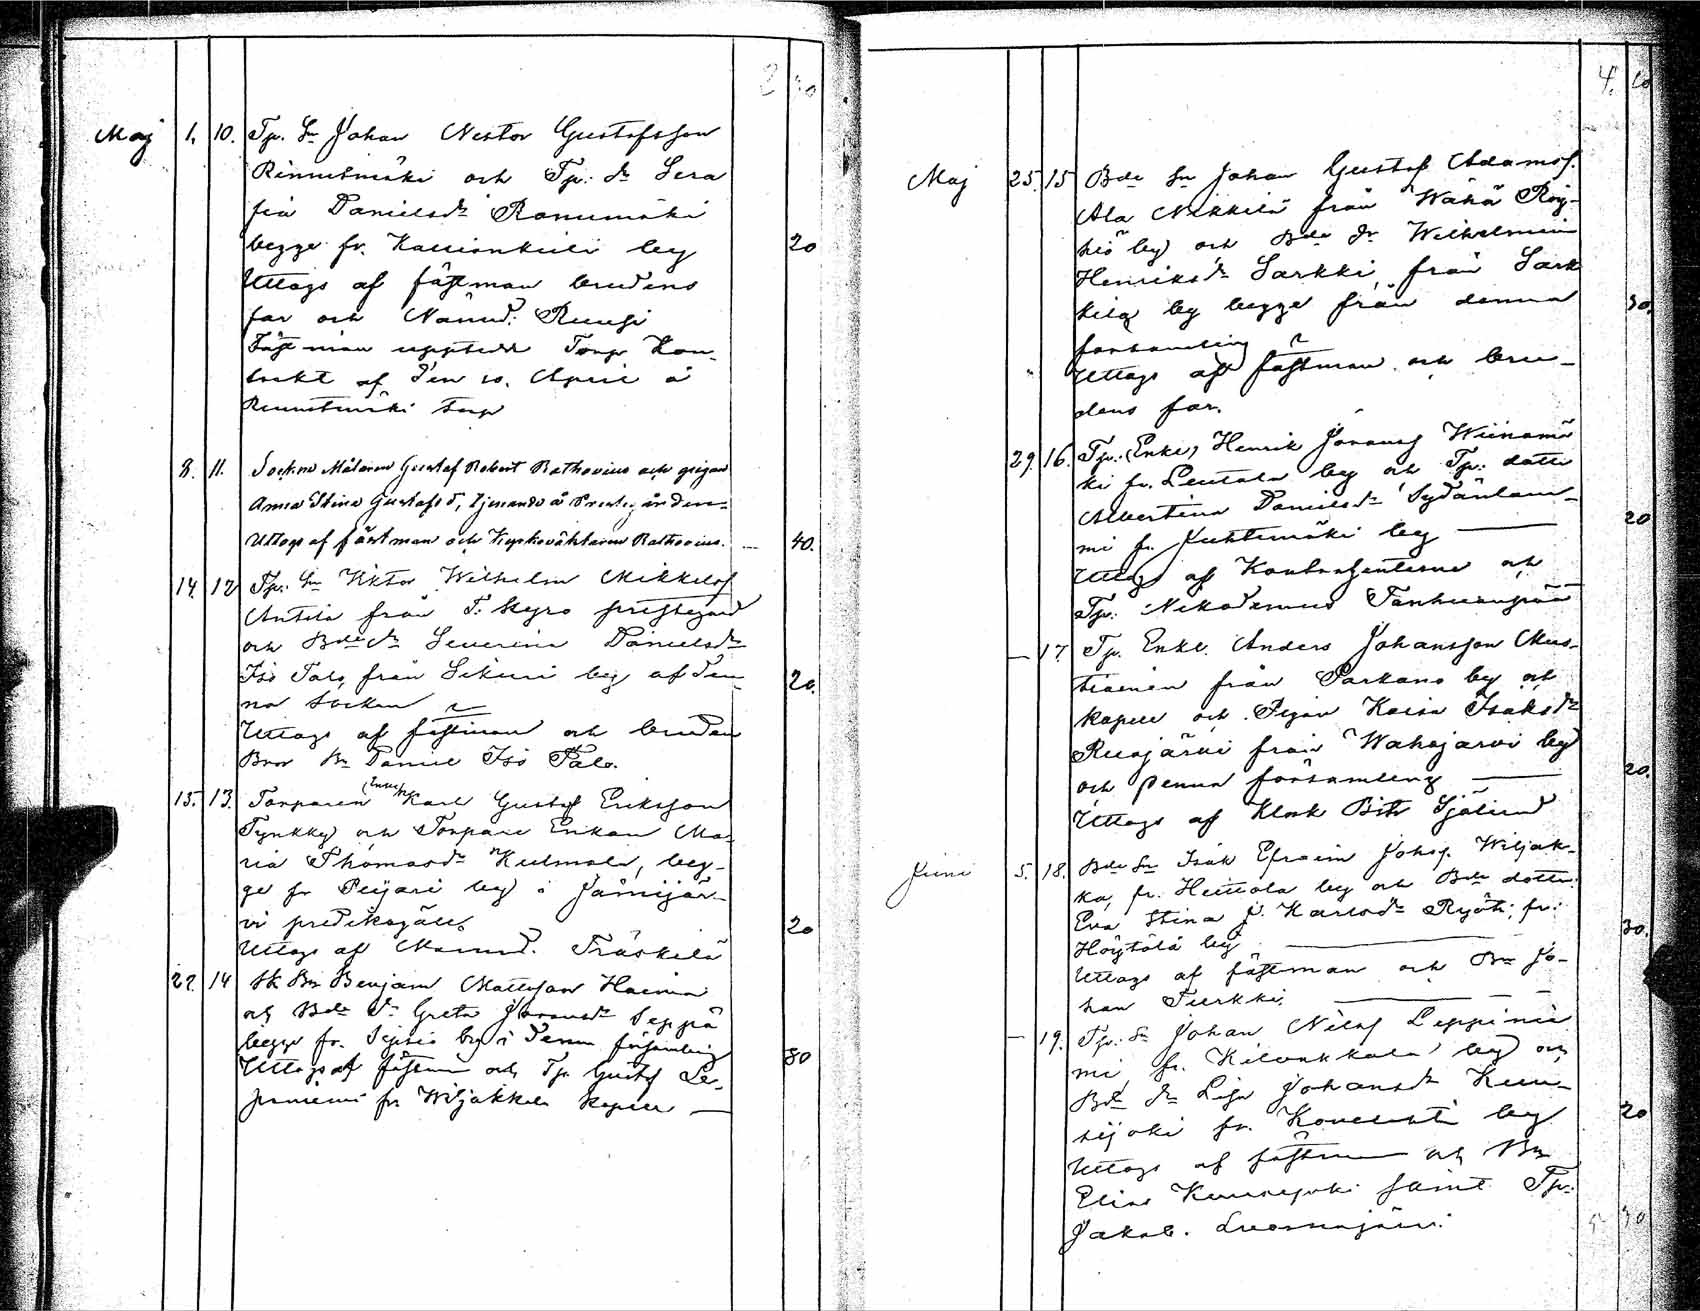 2
Maj 1. 10. Tp. Sn Johan Nestor Gustafsson
och Tp: dr Sera
fia Danielsdr Ranumäki
begge fr. by 20
Uttogs af fästman brudens
far och Nämnd: Ruusi
Fästman uppvisade Torp Kon-
trakt af den 10. April å
torp
8. 11. Sockne Målaren Gustaf Robert Rathovius och pigan
Anna Stina Gustafsd, tjenande å Prestegården
Uttogs af fästman och Kyrkoväktaren Rathovius. — 40.
14. 12 Tp. Sn Viktor Wilhelm Mikkelsf
Antila från T: kyro prestegård
och Bde dr Severina Danielsdr
Iso Talo, från Sikuri by af den 20.
na socken
Uttogs af fästman och brudens
Bror Bn Daniel Iso Talo.
15. 13. Torparen (Enkl) Karl Gustaf Eriksson
Tynkky och Torpare Enkan Ma-
ria Thomasdr Kulmala, beg-
ge fr by i Jämijär-
vi predikogäll. 20
Uttogs af Nämnd. Träskelä
22. 14 Sk Bn Benjam Mattsson Haima
och Bde dr Greta Joransdr Seppä
begge fr. by i denna församling
Uttogs af fästman och Tp Gustaf Le- 80
pniemi fr Wiljakkala kapell —
4. 10
Maj 25. 15 Bde Sn Johan Gustaf Adamsf.
Ala Nikkilä från Wähä Röy-
hiö by och Bde dr Wilhelmin
Henriksdr Sarkki, från Sark
kilä by begge från denna 30.
församling
Uttogs af fästman och bru-
dens far.
29. 16. Tp. (Enkl) Henrik Joransf Wiinamä
ki fr. Leutola by och Tp: dotter
Albertina Danielsdr Sydänlam-
mi fr. Juhtimäki by — 20
Uttogs af Kontrahenterne och
Tp. Nikodemus Tanhuanpää
— 17. Tp. Enkl. Anders Johansson Mus-
tianen från Parkano by och
kapell och Pigan Kaisa Isaksdr
Ruojärvi från Wahojärvi by
och denna församling — 20.
Uttogs af Klock Bitr Sjölund
Juni 5. 18. Bde Sn Isak Efraim Johsf. Wiljak-
ka, fr. Heittola by och Bde dotter
Eva Stina J. Karlsdr Ryöti, fr:
Höytölä by — 30.
Uttogs af fästman och Bn Jo-
han Turkki, —
— 19. Tp. Sn Johan Nilsf Leppinie
mi fr. Kilvakkala by och
Bde dr Lisa Johansdr Kuu-
sijoki fr. Kovelahti by 20
Uttogs af fästman och Bn
Elias Kuusijoki samt Tp.
Jakob.